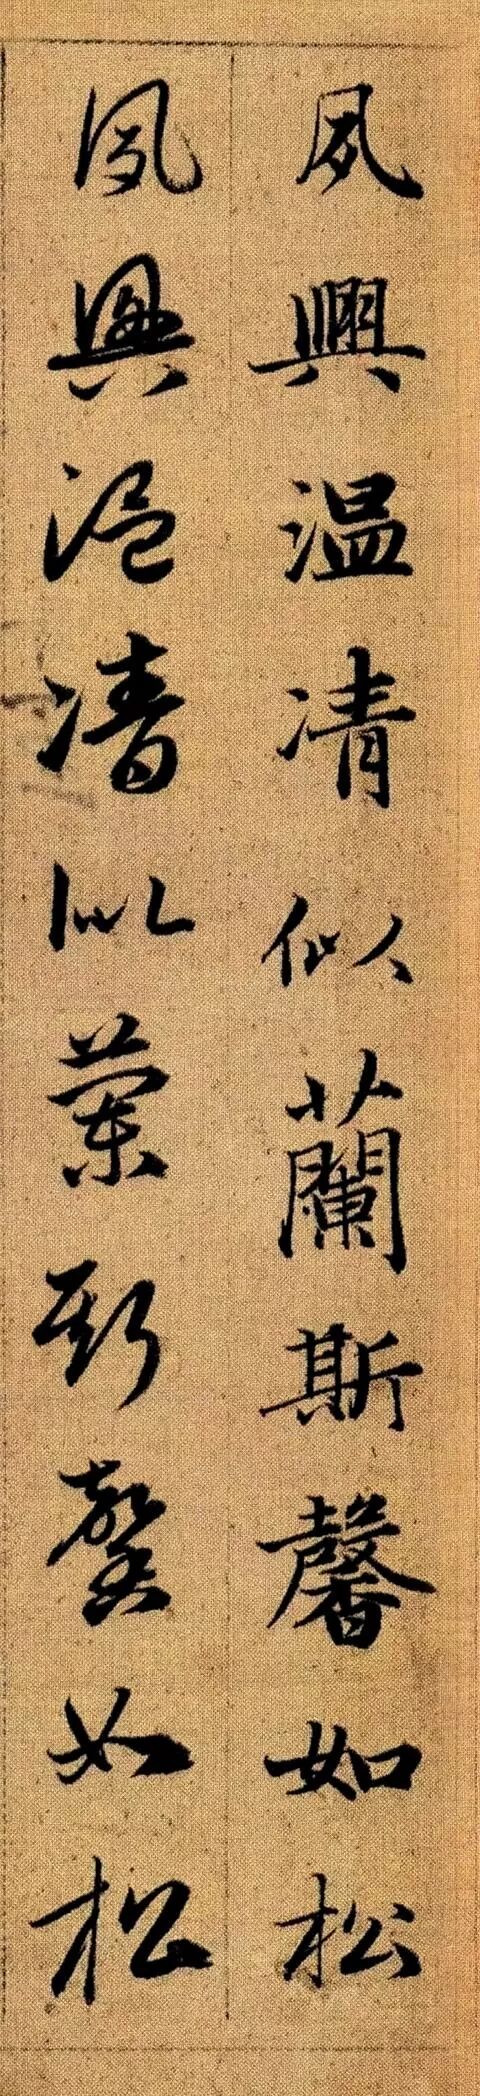 夙興溫凊似蘭斯馨如松
夙興溫凊似蘭斯馨如松